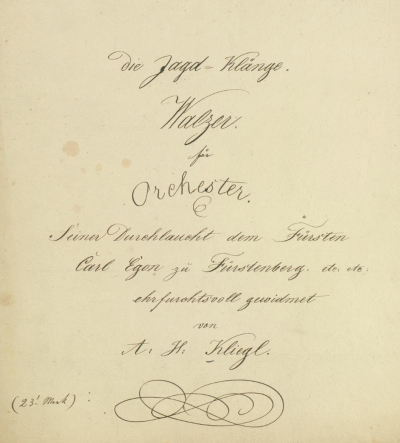 Die Jagd=Klänge.
Walzer.
für
Orchester.
Seiner Durchlaucht dem Fürsten
Carl Egon zu Fürstenberg. etc. etc.
ehrfurchtsvoll gewidmet
von
A. H. Kliegl.
(23. Werk)